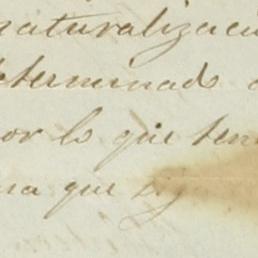 naturalizaci
determinado
or lo que ten
na que